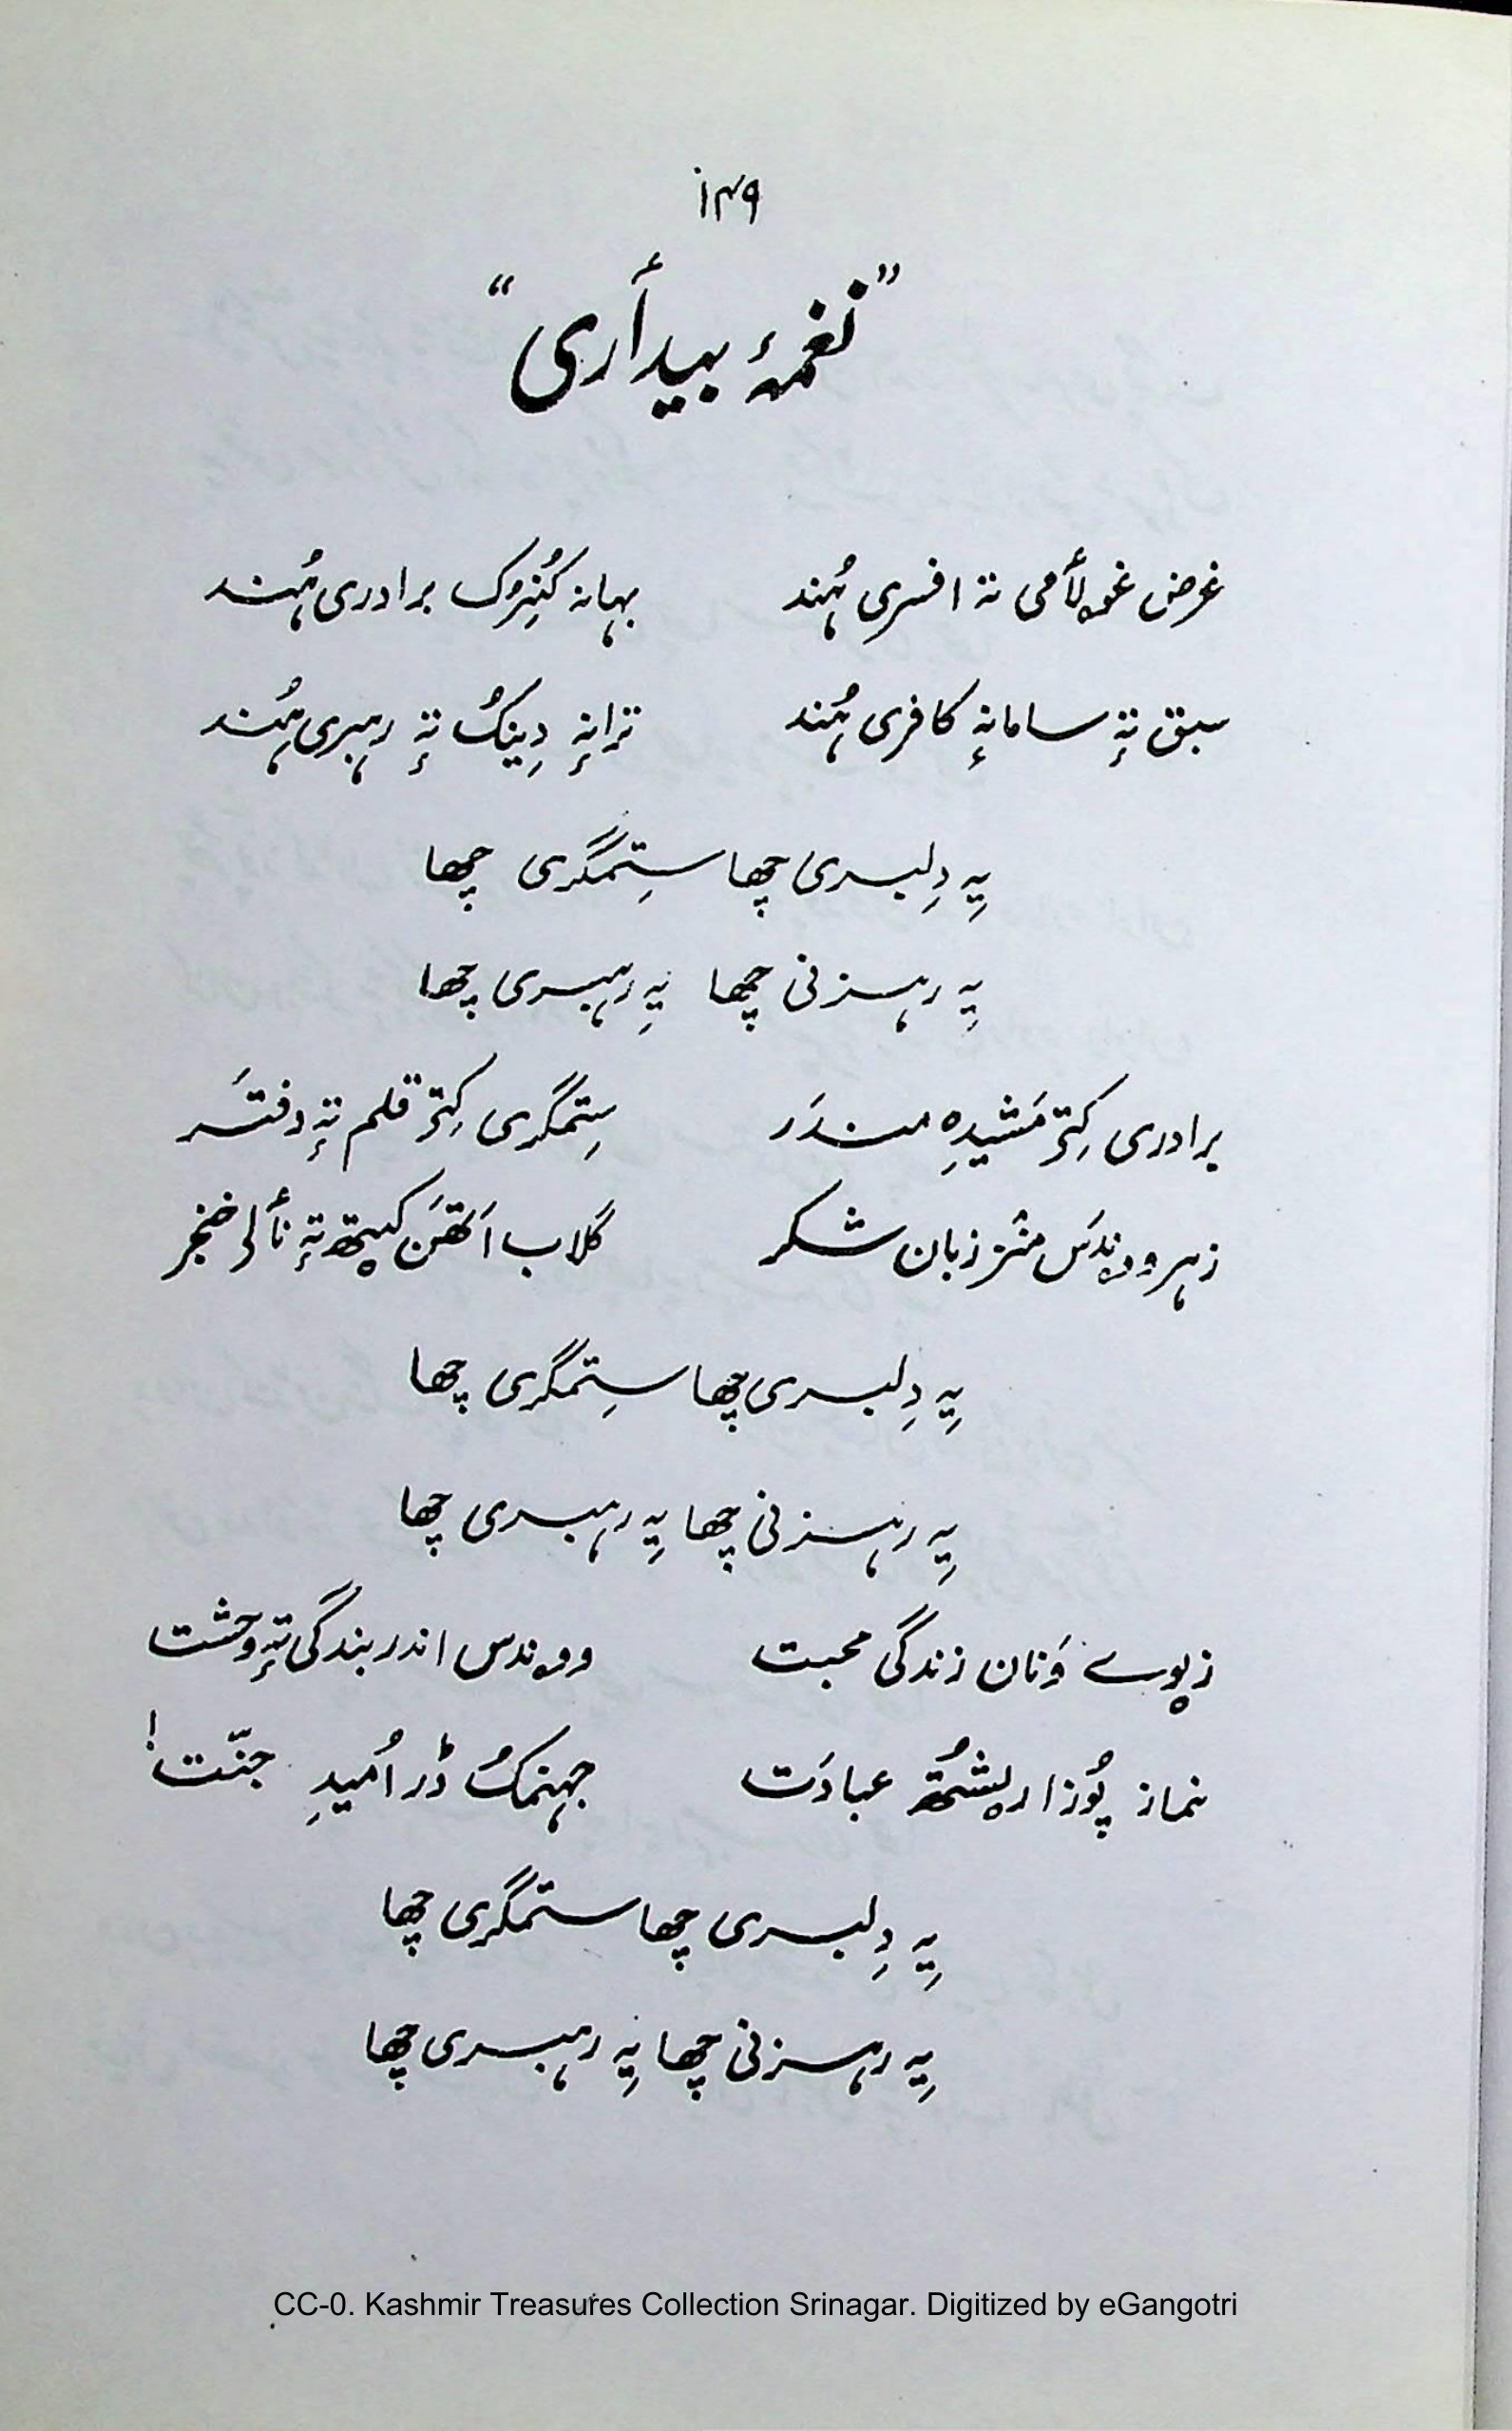 ۱۴۹
”نغمۂ بیدٲری“
غرض غۄلٲمی تہ افسری ہُند بہانہ کُنِرُک برادری ہُند
سبق تہٕ سامانہٕ کافری ہُند ترانہٕ دِینُک تہٕ رہبری ہُند
یِہ دِلبری چھا سِتمگری چھا
یِہ رہزنی چھا یِہ رہبری چھا
برادری کِژ مَشیدِ مندَر سِتمگری کِژ قلم تہٕ دفتَر
زہر وۄندَس منٛز زبان شکر گلاب اَتھَن کیتھ تہٕ نٲلۍ خنجر
یِہ دِلبری چھا سِتمگری چھا
یِہ رہزنی چھا یِہ رہبری چھا
زیوے وَنان زندگی محبت وۄندس اندر بندگی تہٕ وحشت
نماز پُوزا عبادَت جہنمُک ڈر اُمیدِ جنّت!
یِہ دِلبری چھا ستمگری چھا
یِہ رہزنی چھا یِہ رہبری چھا
CC-0. Kashmir Treasures Collection Srinagar. Digitized by eGangotri